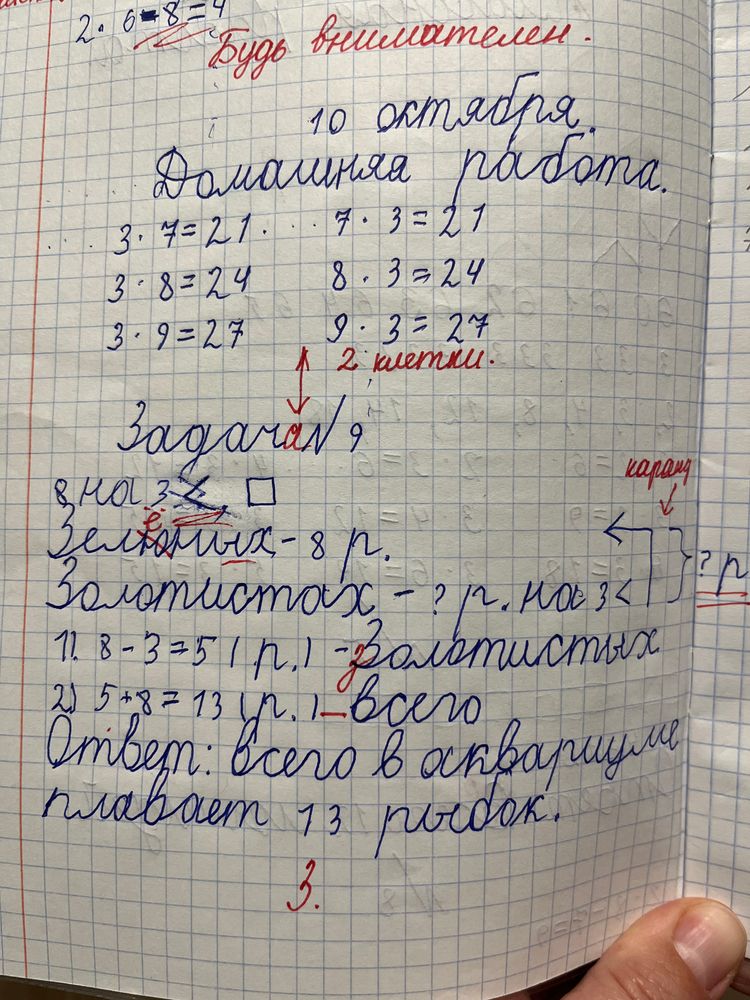 2. 6-8=4
Будь внимателен.
10 октября.
Домашняя работа.
3 · 7=21. 7 · 3=21
3 · 8=24 8 · 3=24
3 · 9=27 9 · 3=27
2 клетки.
Задача № 9
8, на 3 <, □
каранд
Зеленых - 8 р.
? р
Золотистах - ? р. на 3 <
1). 8-3=5 (р.) - золотистых
2) 5+8=13 (р.) - всего
Ответ: всего в оаквариуме
плавает 13 рыбок.
3.